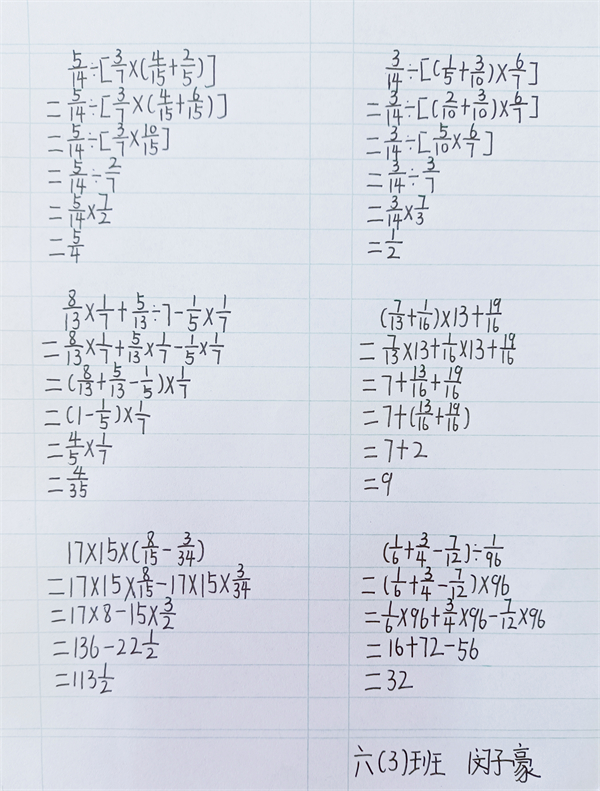 5/14÷[3/7×(4/15+2/5)]
=5/14÷[3/7×(4/15+6/15)]
=5/14÷[3/7×10/15]
=5/14÷2/7
=5/14×7/2
=5/4
3/14÷[(1/5+3/10)×6/7]
=3/14÷[(2/10+3/10)×6/7]
=3/14÷[5/10×6/7]
=3/14÷3/7
=3/14×7/3
=1/2
8/13×1/7+5/13÷7-1/5×1/7
=8/13×1/7+5/13×1/7-1/5×1/7
=(8/13+5/13-1/5)×1/7
=(1-1/5)×1/7
=4/5×1/7
=4/35
(7/13+1/16)×13+19/16
=7/13×13+1/16×13+19/16
=7+13/16+19/16
=7+(13/16+19/16)
=7+2
=9
17×15×(8/15-3/34)
=17×15×8/15-17×15×3/34
=17×8-15×3/2
=136-22 1/2
=113 1/2
(1/6+3/4-7/12)÷1/96
=(1/6+3/4-7/12)×96
=1/6×96+3/4×96-7/12×96
=16+72-56
=32
六(3)班 闵子豪